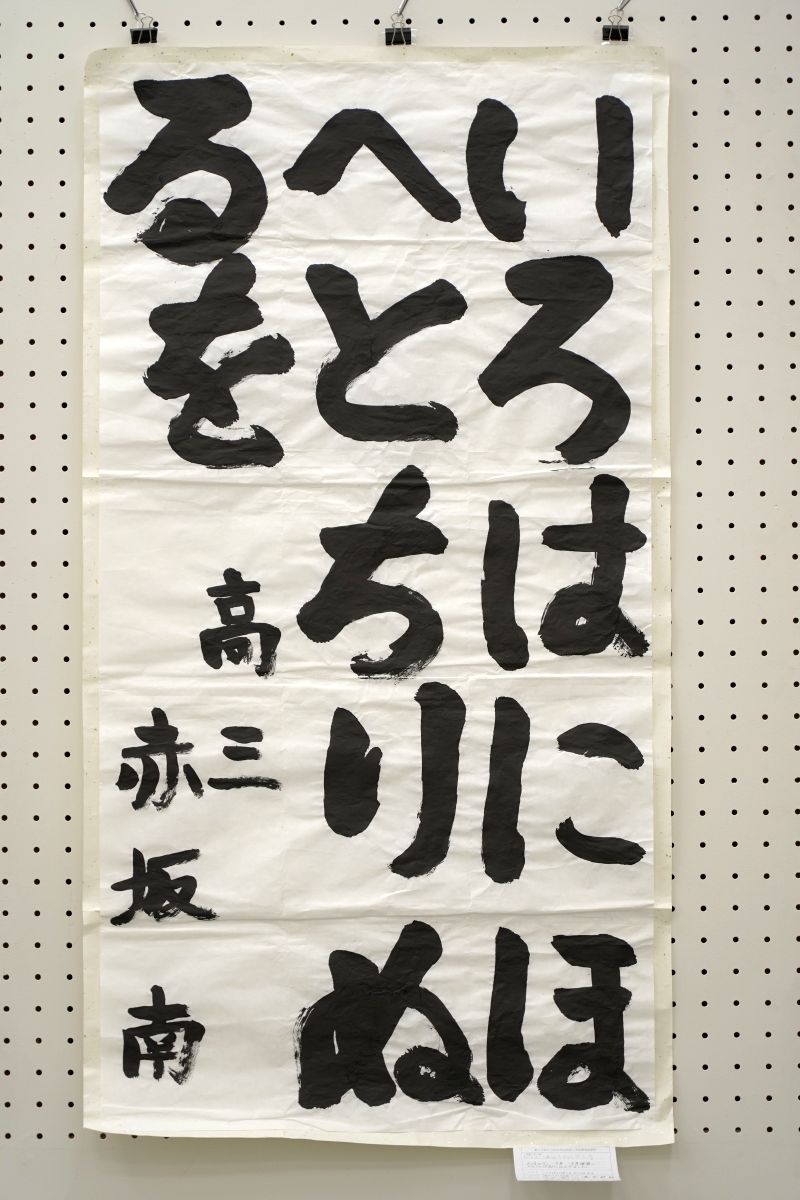 いろはにほ
へとちりぬ
るを
高三
赤坂南